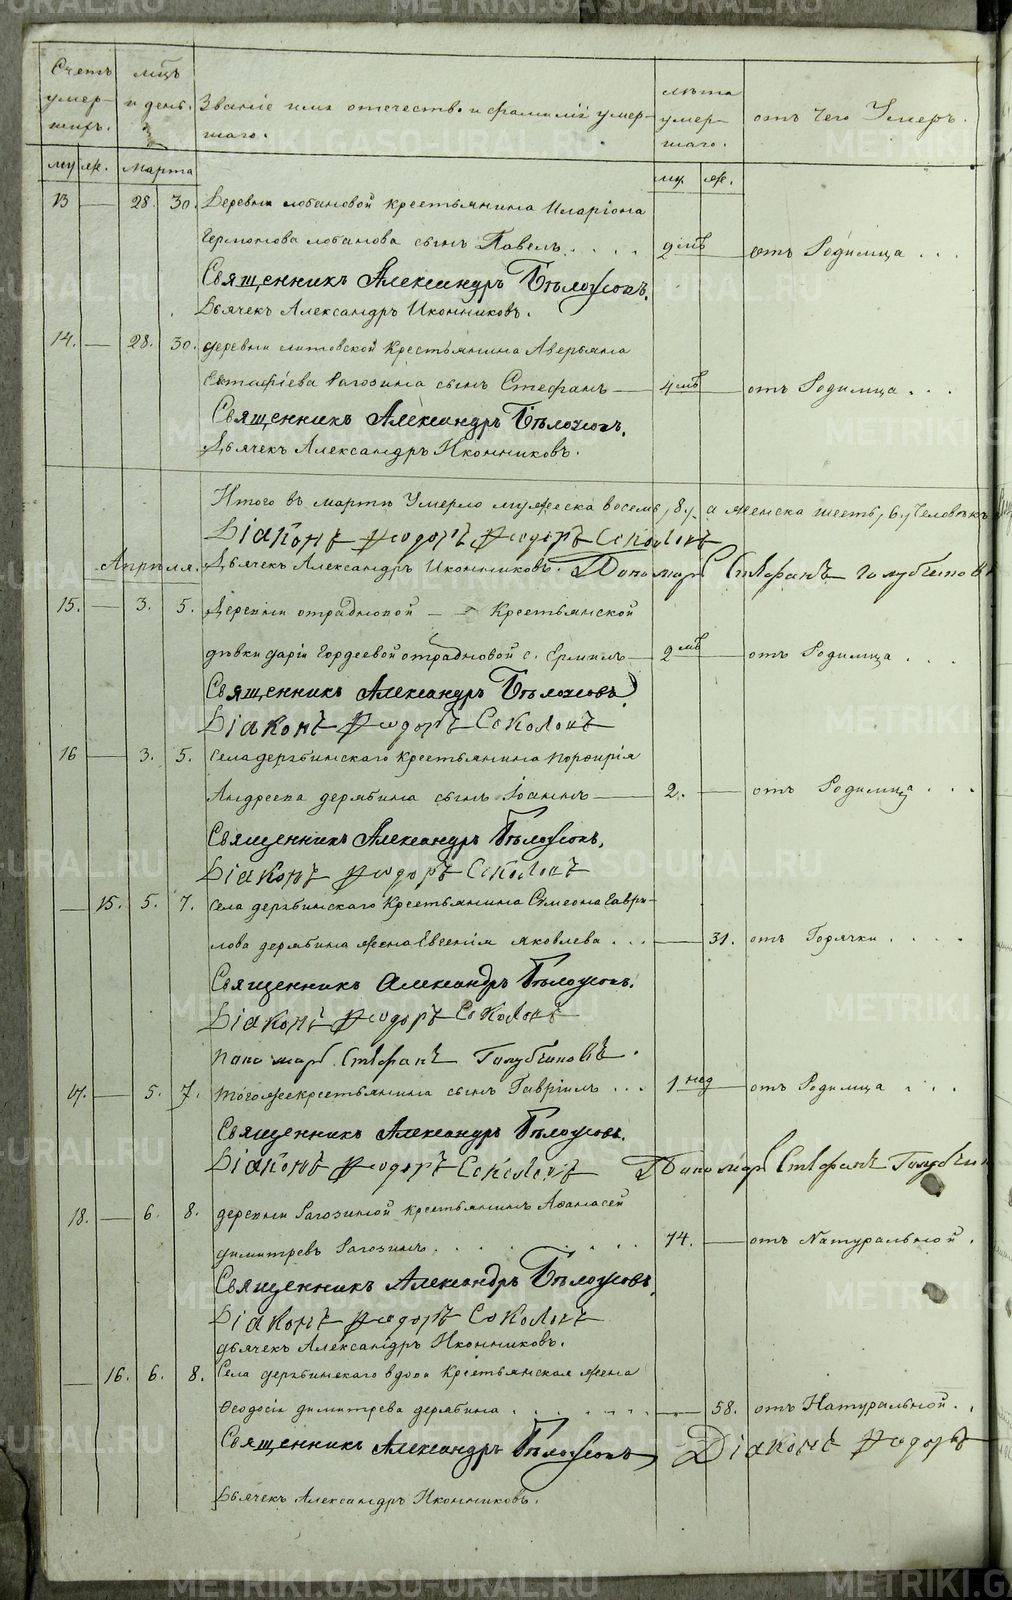 Счетъ умер-шихъ.
мцъ и день.
Званіе имя отечество и фамилія умер-
шаго.
лѣта умер-шаго.
отъ чего Умеръ.
му. же.
Марта
му. же.
13 — 28. 30. Деревни лобановой крестьянина Иларіона
лобанова сынъ Павелъ . . . . 2 мѣ — отъ Родимца . . .
Священникъ Александръ Бѣлоусовъ.
Дьячекъ Александръ Иконниковъ.
14. — 28. 30. деревни крестьянина Аверьяна
Рагозина сынъ Стефанъ — 4 мѣ — отъ Родимца . . .
Священникъ Александръ Бѣлоусовъ.
Дьячекъ Александръ Иконниковъ.
Итого въ мартѣ Умерло мужеска восемь, 8, а женска шесть, 6, человѣкъ
Діаконъ Ѳеодоръ Ѳеодоръ Соколовъ
Апреля. Дьячекъ Александръ Иконниковъ. Пономарь Стефанъ Голубчиковъ
15. — 3. 5. Деревни отрадновой — Крестьянской
дѣвки даріи Гордеевой отрадновой с. Ермилъ — 2 мѣ — отъ Родимца . . .
Священникъ Александръ Бѣлоусовъ
Діаконъ Ѳеодоръ Соколовъ
16 — 3. 5. села дерябинскаго Крестьянина порфирія
Андреева дерябина сынъ Іоаннъ — 2. — отъ Родимца . . .
Священникъ Александръ Бѣлоусовъ.
Діаконъ Ѳеодоръ Соколовъ
— 15. 5. 7. села дерябинскаго Крестьянина Симеона Гаври-
лова дерябина жена Евгенія яковлева . . . — 31. отъ Горячки . . . .
Священникъ Александръ Бѣлоусовъ.
Діаконъ Ѳеодоръ Соколовъ
пономарь Стефанъ Голубчиковъ.
17. — 5. 7. тогоже крестьянина сынъ Гавріилъ . . . 1 нед — отъ Родимца . . .
Священникъ Александръ Бѣлоусовъ.
Діаконъ Ѳеодоръ Соколовъ Пономарь Стефанъ Голубчик
18. — 6. 8. деревни Рагозиной крестьянинъ Афанасей
димитревъ Рагозинъ . . . . 74. — отъ Натуральной.
Священникъ Александръ Бѣлоусовъ.
Діаконъ Ѳеодоръ Соколовъ
дьячекъ Александръ Иконниковъ.
— 16. 6. 8. Села дерябинскаго вдова Крестьянская жена
Ѳеодосія димитрева дерябина . . . . — 58. отъ Натуральной . .
Священникъ Александръ Бѣлоусовъ, Діаконъ Ѳеодоръ
Дьячекъ Александръ Иконниковъ.
METRIKI.GASO-URAL.RU